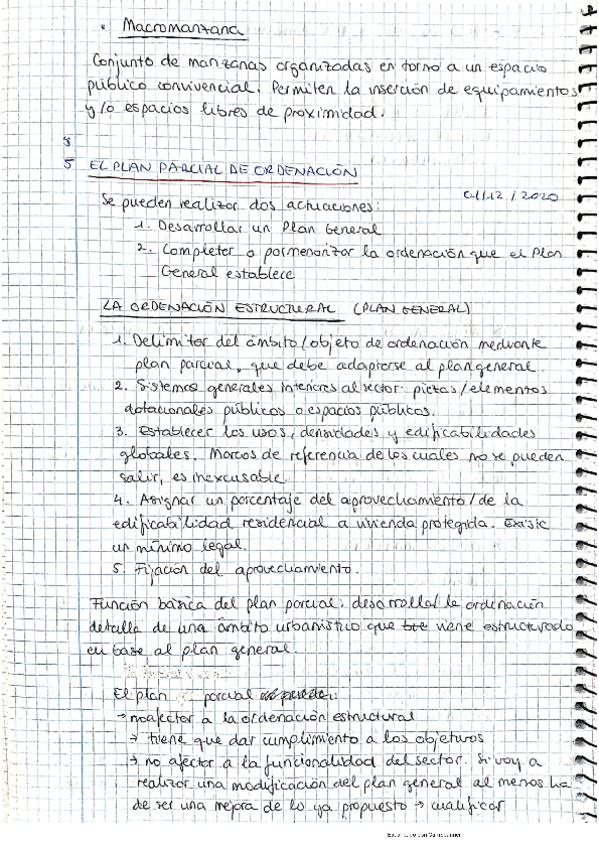 • Macromanzana
Conjunto de manzanas organizadas en torno a un espacio
público convivencial. Permiten la inserción de equipamientos
y/o espacios libres de proximidad.
5 EL PLAN PARCIAL DE ORDENACIÓN
01/12/2020
Se pueden realizar dos actuaciones:
1. Desarrollar un Plan General
2. Completar o pormenorizar la ordenación que el Plan
General establece
LA ORDENACIÓN ESTRUCTURAL (PLAN GENERAL)
1. Delimitar del ámbito/objeto de ordenación mediante
plan parcial, que debe adaptarse al plan general.
2. Sistemas generales interiores al sector: piezas/elementos
dotacionales públicos o espacios públicos.
3. Establecer los usos, densidades y edificabilidades
globales. Marcos de referencia de los cuales no se pueden
salir, es inexcusable.
4. Asignar un porcentaje del aprovechamiento/de la
edificabilidad residencial a vivienda protegida. Existe
un mínimo legal.
5. Fijación del aprovechamiento.
Función básica del plan parcial: desarrollar la ordenación
detalla de una ámbito urbanístico que viene estructurado
en base al plan general.
El plan parcial
→ no afectar a la ordenación estructural
→ tiene que dar cumplimiento a los objetivos
→ no afectar a la funcionalidad del sector. Si voy a
realizar una modificación del plan general al menos ha
de ser una mejora de lo ya propuesto → cualificar